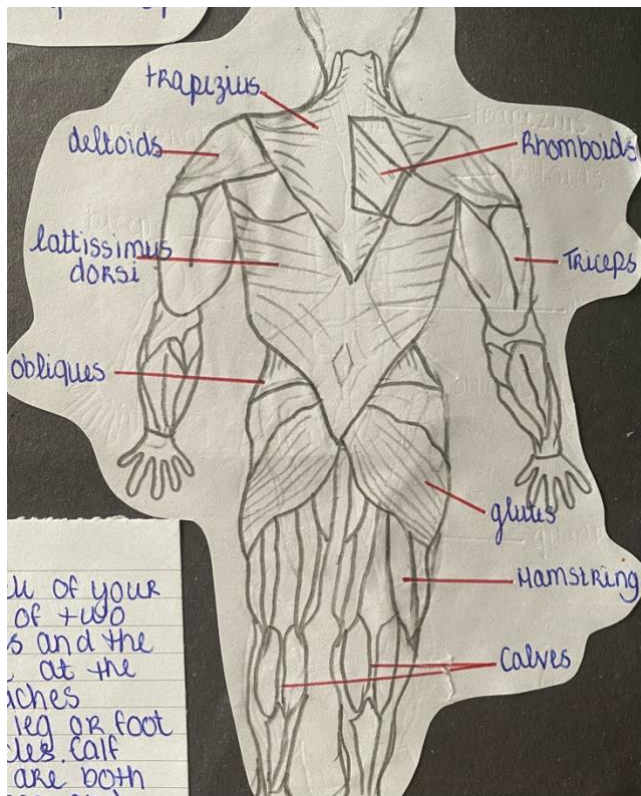 trapizius
deltoids
Rhomboids
lattissimus
dorsi
Triceps
obliques
glutes
Hamstring
Calves
of your
of two
and the
at the
leg or foot
Calf
are both